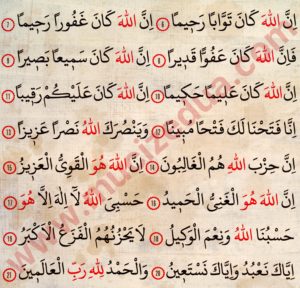 إِنَّ اللهَ كَانَ تَوَّابًا رَحِيمًا ٦ إِنَّ اللهَ كَانَ غَفُورًا رَحِيمًا ٧
فَإِنَّ اللهَ كَانَ عَفُوًّا قَدِيرًا ٨ إِنَّ اللهَ كَانَ سَمِيعًا بَصِيرًا ٩
إِنَّ اللهَ كَانَ عَلِيمًا حَكِيمًا ١٠ إِنَّ اللهَ كَانَ عَلَيْكُمْ رَقِيبًا ١١
إِنَّا فَتَحْنَا لَكَ فَتْحًا مُبِينًا ١٢ وَيَنْصُرَكَ اللهُ نَصْرًا عَزِيزًا ١٣
إِنَّ حِزْبَ اللهِ هُمُ الْغَالِبُونَ ١٤ إِنَّ اللهَ هُوَ الْقَوِيُّ الْعَزِيزُ
إِنَّ اللهَ هُوَ الْغَنِيُّ الْحَمِيدُ حَسْبِيَ اللهُ لَا إِلٰهَ إِلَّا هُوَ ١٧
حَسْبُنَا اللهُ وَنِعْمَ الْوَكِيلُ لَا يَحْزُنُهُمُ الْفَزَعُ الْاَكْبَرُ
إِيَّاكَ نَعْبُدُ وَإِيَّاكَ نَسْتَعِينُ ٢٠ وَالْحَمْدُ لِلهِ رَبِّ الْعَالَمِينَ ٢١